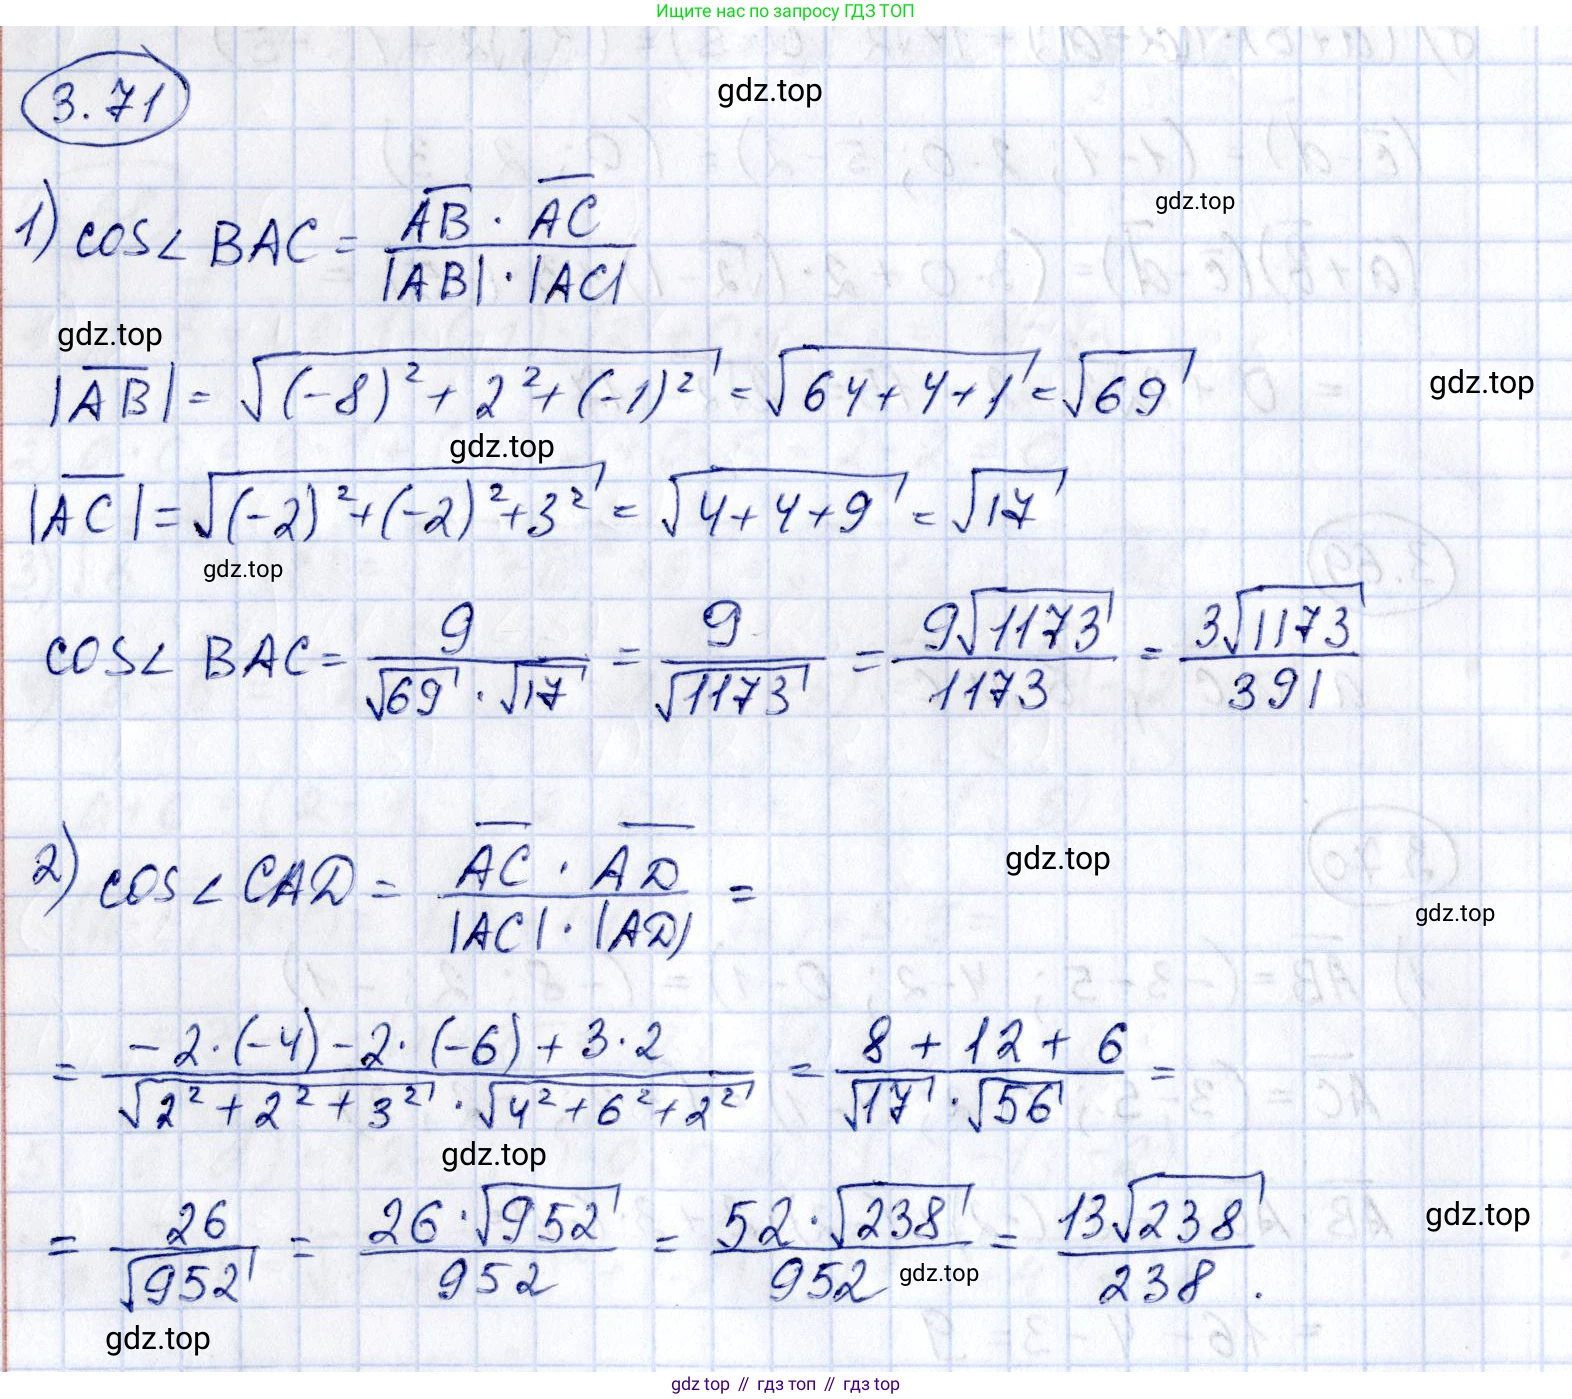 Ищите нас по запросу ГДЗ ТОП
3.71
gdz.top
1) cos∠ BAC = (AB · AC) / (|AB| · |AC|)
gdz.top
gdz.top
|AB| = √((-8)² + 2² + (-1)²) = √(64 + 4 + 1) = √69
gdz.top
gdz.top
|AC| = √((-2)² + (-2)² + 3²) = √(4 + 4 + 9) = √17
gdz.top
cos∠ BAC = 9 / (√69 · √17) = 9 / √1173 = 9√1173 / 1173 = 3√1173 / 391
2) cos∠ CAD = (AC · AD) / (|AC| · |AD|) =
gdz.top
gdz.top
= (-2·(-4) - 2·(-6) + 3·2) / (√(2² + 2² + 3²) · √(4² + 6² + 2²)) = (8 + 12 + 6) / (√17 · √56) =
gdz.top
= 26 / √952 = 26·√952 / 952 = 52·√238 / 952 = 13√238 / 238.
gdz.top
gdz.top
gdz.top
gdz top // гдз топ // гдз top